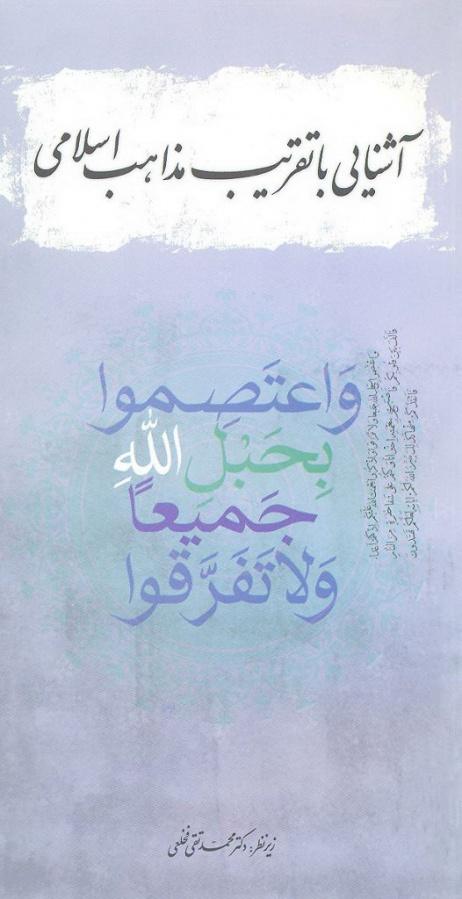 آشنایی با تقریب مذاهب اسلامی
وَاعتَصِموا
بِحَبْلِ اللَّهِ
جَميعاً
وَلا تَفَرَّقوا
زیر نظر: دکتر محمد تقی فخلعی